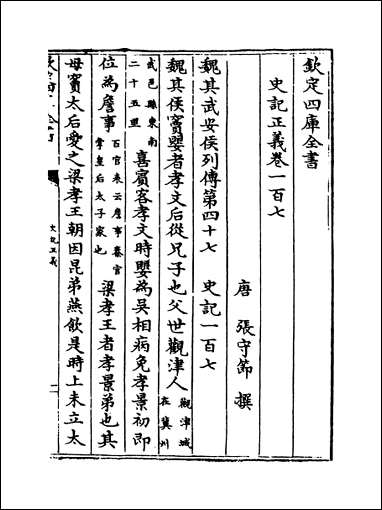 欽定四庫全書
史記正義卷一百七
唐 張守節 撰
魏其武安侯列傳第四十七 史記一百七
魏其侯竇嬰者孝文后從兄子也父世觀津人觀津城在冀州
武邑縣東南二十五里喜賓客孝文時嬰為吳相病免孝景初即
位為詹事百官表云詹事秦官掌皇后太子家也梁孝王者孝景弟也其
母竇太后愛之梁孝王朝因昆弟燕飲是時上未立太
史記正義